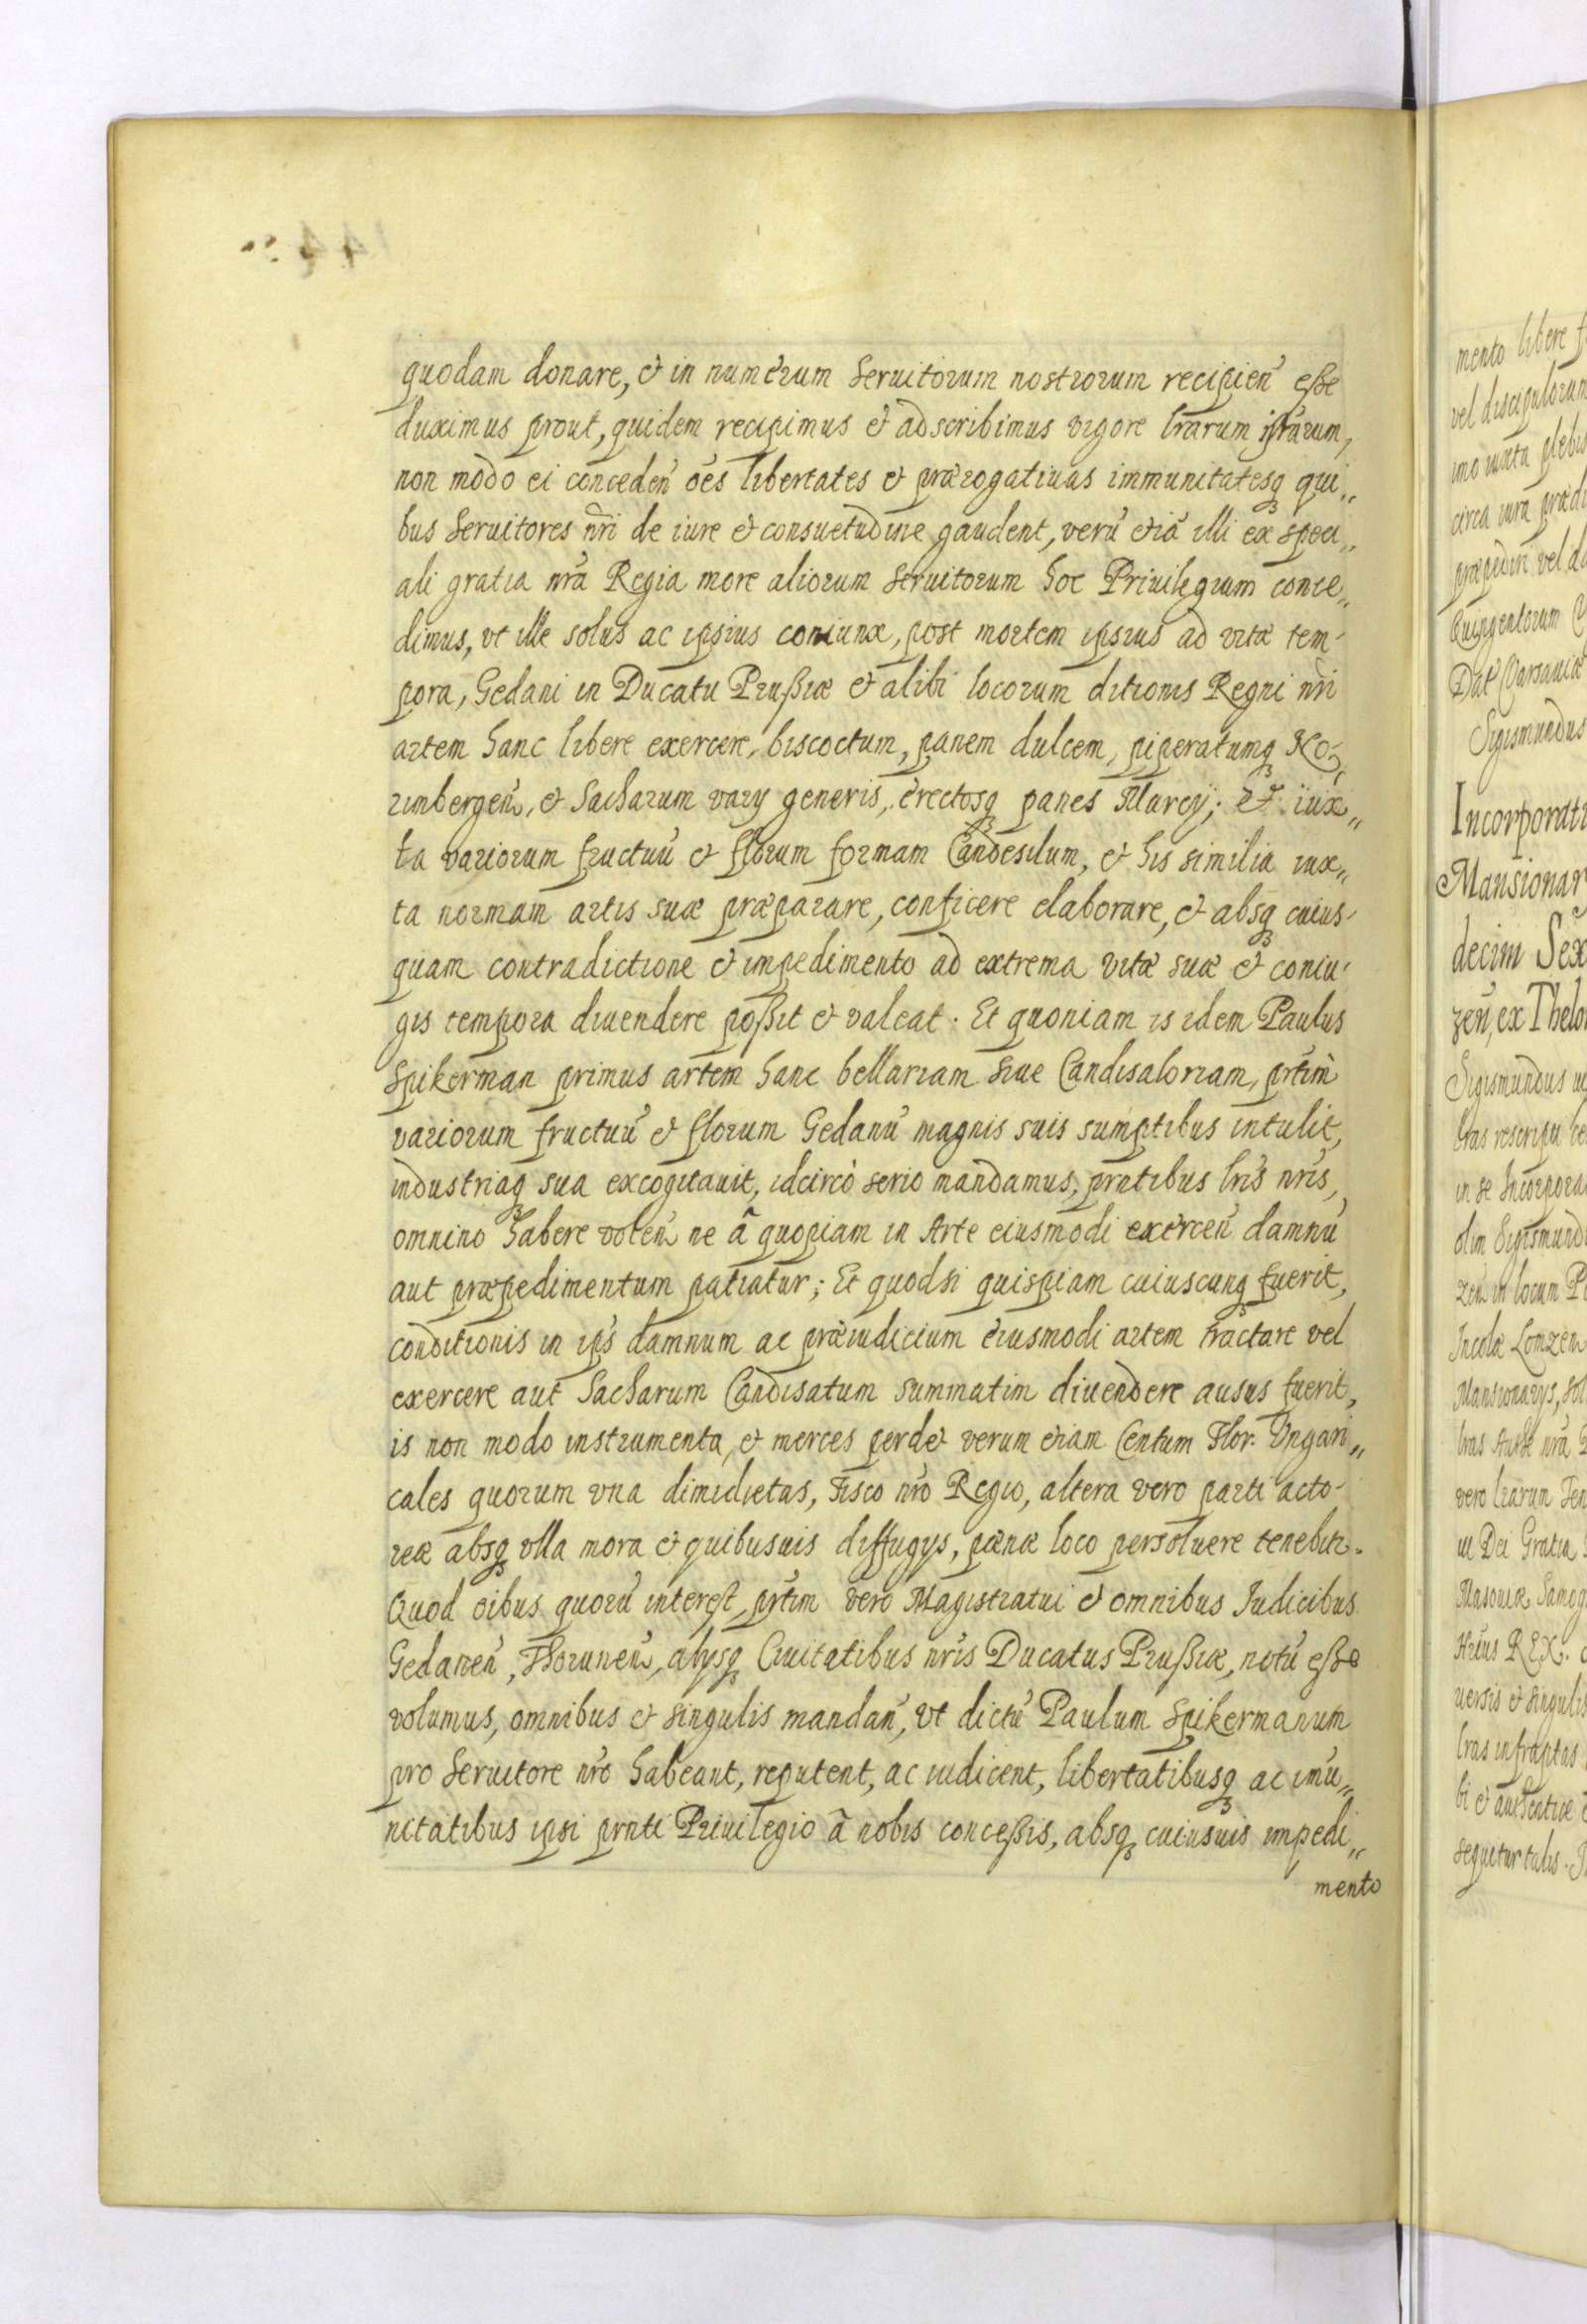 quodam donare, & in numerum Seruitorum nostrorum recipien̄ esse
duximus prout, quidem recipimus & adscribimus vigore lrarum istarum,
non modo ei conceden̄ oēs libertates & prærogatiuas immunitatesq₃ qui„
bus Seruitores nr̄i de iure & consuetudine gaudent, verū etiā illi ex speci„
ali gratia nrā Regia more aliorum seruitorum hoc Priuilegium conce„
dimus, vt ille solus ac ipsius coniunx, post mortem ipsius ad vitæ tem-
pora, Gedani in Ducatu Prußiæ & alibi locorum ditionis Regni nr̄i
artem hanc libere exercere, biscoctum, panem dulcem, piperatumq₃ No-
rimbergen̄, & Sacharum varÿ generis, erectosq₃ panes Marcÿ; Et iux„
ta variorum fructuū & florum formam Candesilum, & his similia iux„
ta normam artis suæ præparare, conficere elaborare, & absq₃ cuius-
quam contradictione & impedimento ad extrema vitæ suæ & coniu-
gis tempora diuendere poßit & valeat. Et quoniam is idem Paulus
Spikerman primus artem hanc bellariam siue Candisaloriam, prt̄im
variorum fructuū & florum Gedanū magnis suis sumptibus intulit,
industriaq₃ sua excogitauit, idcircò serio mandamus, prntibus lris nris,
omnino habere volen̄ ne à quopiam in Arte eiusmodi exercen̄ damnū
aut præpedimentum patiatur; Et quodsi quispiam cuiuscunq₃ fuerit,
conditionis in ip̄s damnum ac præiudicium eiusmodi artem tractare vel
exercere aut Sacharum Candisatum summatim diuendere ausus fuerit,
is non modo instrumenta, & merces perdet verum etiam Centum Flor. Vngari„
cales quorum vna dimidietas, Fisco nrō Regio, altera vero parti acto-
reæ absq₃ vlla mora & quibusuis diffugÿs, pœnæ loco persoluere tenebitr.
Quod oībus quorū interest, prt̄im vero Magistratui & omnibus Iudicibus
Gedanen̄, Thorunen̄, alÿsq₃ Ciuitatibus nris Ducatus Prußiæ, notū esse
volumus, omnibus & singulis mandan̄, vt dictū Paulum Spikermanum
pro Seruitore nrō habeant, reputent, ac iudicent, libertatibusq₃ ac imū„
nitatibus ipsi prnti Priuilegio à nobis conceßis, absq₃ cuiusuis impedi„
mento
mento libere
vel discipulorum
imo iuxta plebis
circa iura prædi
præpediri vel
Quingentorum
Dat Varsauiæ
Sigismundus
Incorporati
Mansionar
decim Sex
zen̄, ex Thelo
Sigismundus
lras rescripti
in se Incorpora
olim Sigismund
zen̄ in locum
Incolæ Lomzen̄
Mansionarÿs,
lras
vero lrarum
ui Dei Gratia
Masouiæ Samog
REX.
uersis & singulis
lras infraptas
bi &
sequitur talis.